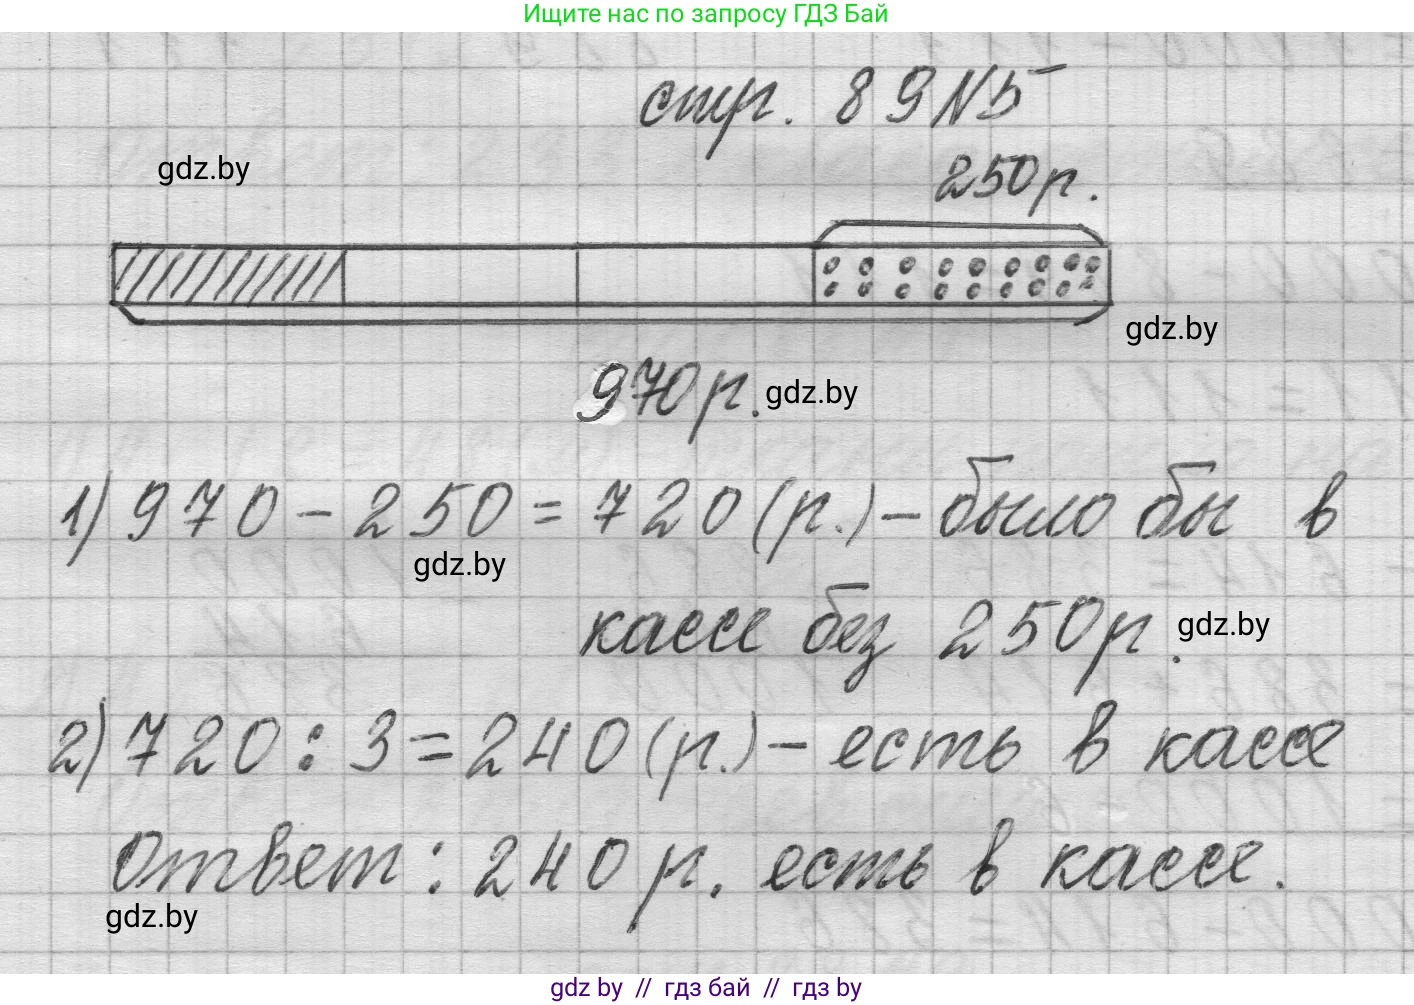 Ищите нас по запросу ГДЗ Бай
стр. 89 N5
gdz.by
250р.
gdz.by
970р.
gdz.by
1) 970 - 250 = 720 (р.) - было бы в
gdz.by
кассе без 250р.
gdz.by
2) 720 : 3 = 240 (р.) - есть в кассе
Ответ: 240 р. есть в кассе.
gdz.by
gdz by // гдз бай // гдз by